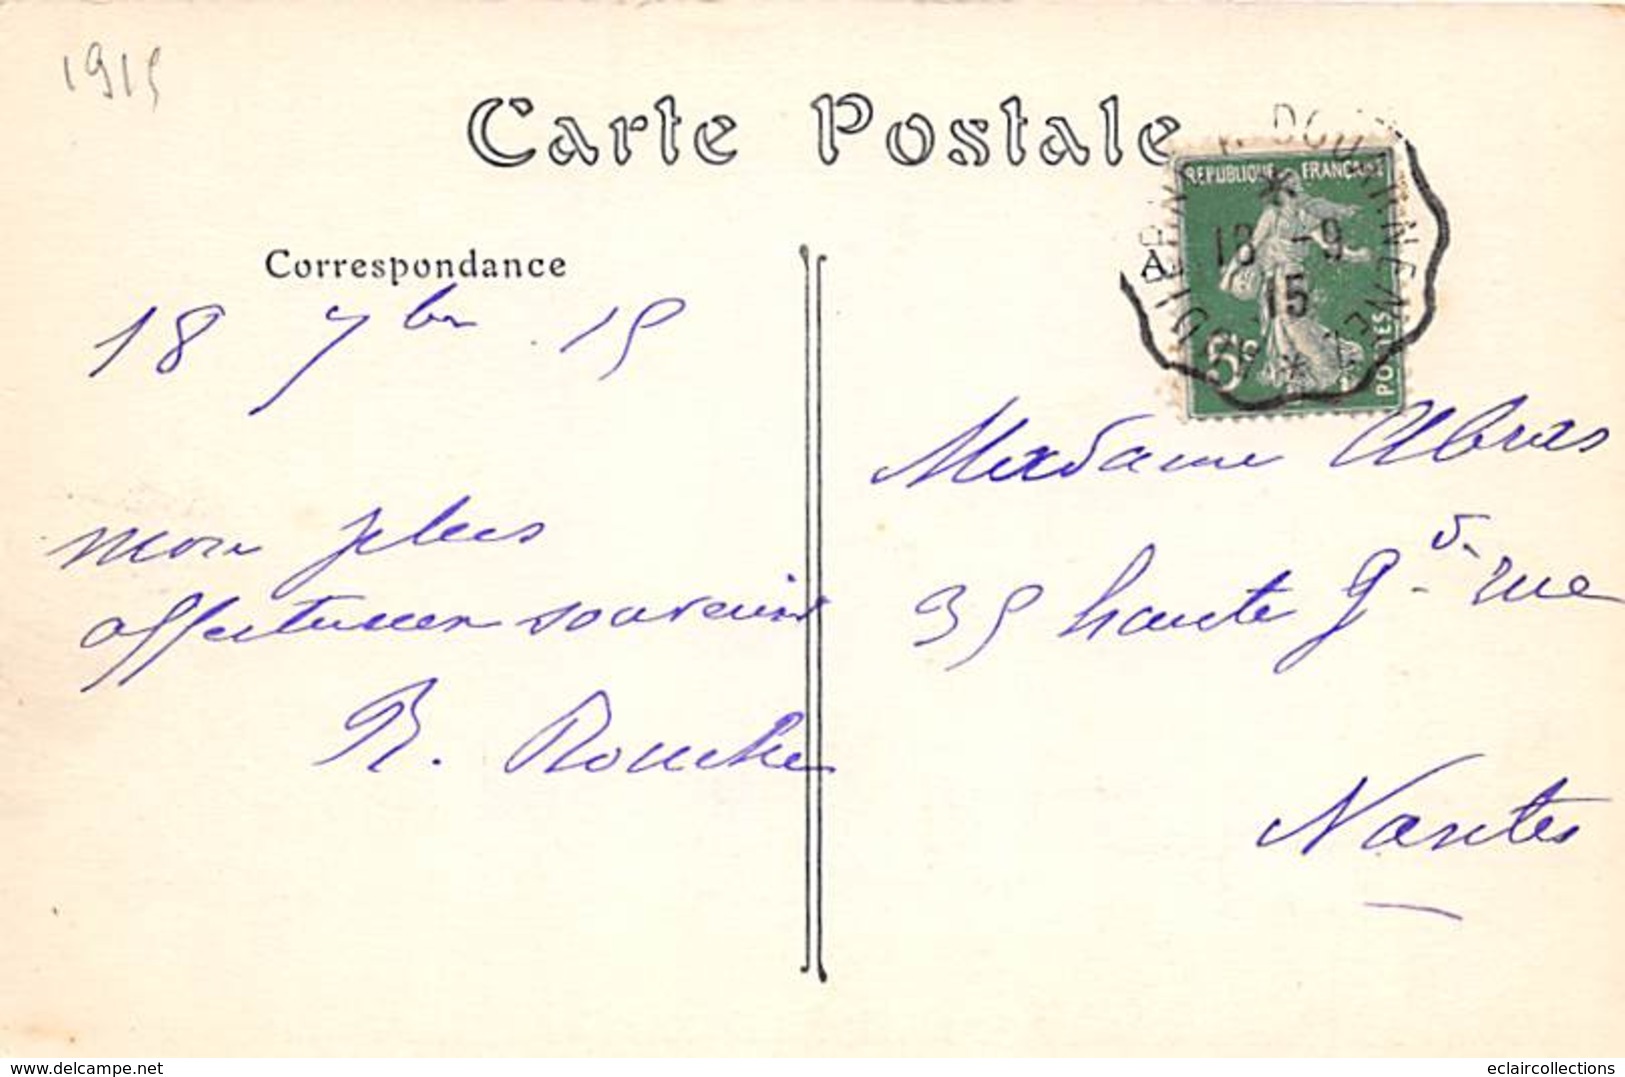 1915
Carte Postale
Correspondance
18 7bre 15
mon plus
affectueux souvenir
R. Rouche
REPUBLIQUE FRANÇAISE
18 -9
15
5c
POSTES
A
Madame Abras
35 haute Gde rue
Nantes
delcampe.net
eclaircollections